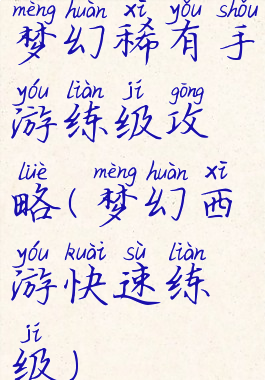 mèng huàn xī yǒu shǒu
梦幻稀有手
yóu liàn jí gōng
游练级攻
lüè mèng huàn xī
略(梦幻西
yóu kuài sù liàn
游快速练
jí
级)